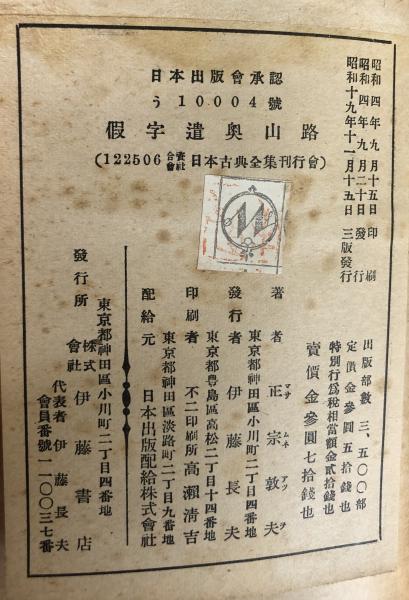 日本出版會承認
う10004號
假字遣奥山路
(122506 合資會社 日本古典全集刊行會)
昭和四年九月十五日印刷
昭和四年九月二十日發行
昭和十九年十一月十五日三版發行
出版部數三、五〇〇部
定價金參圓五拾錢也
特別行爲税相當額金貳拾錢也
賣價金參圓七拾錢也
著者 正宗敦夫
マサ ムネ アツ ヲ
東京都神田區小川町二丁目四番地
發行者 伊藤長夫
東京都豊島區高松二丁目十四番地
印刷者 不二印刷所高瀬清吉
東京都神田區淡路町二丁目九番地
配給元 日本出版配給株式會社
東京都神田區小川町二丁目四番地
發行所 株式會社 伊藤書店
代表者 伊藤長夫
會員番號一一〇〇三七番